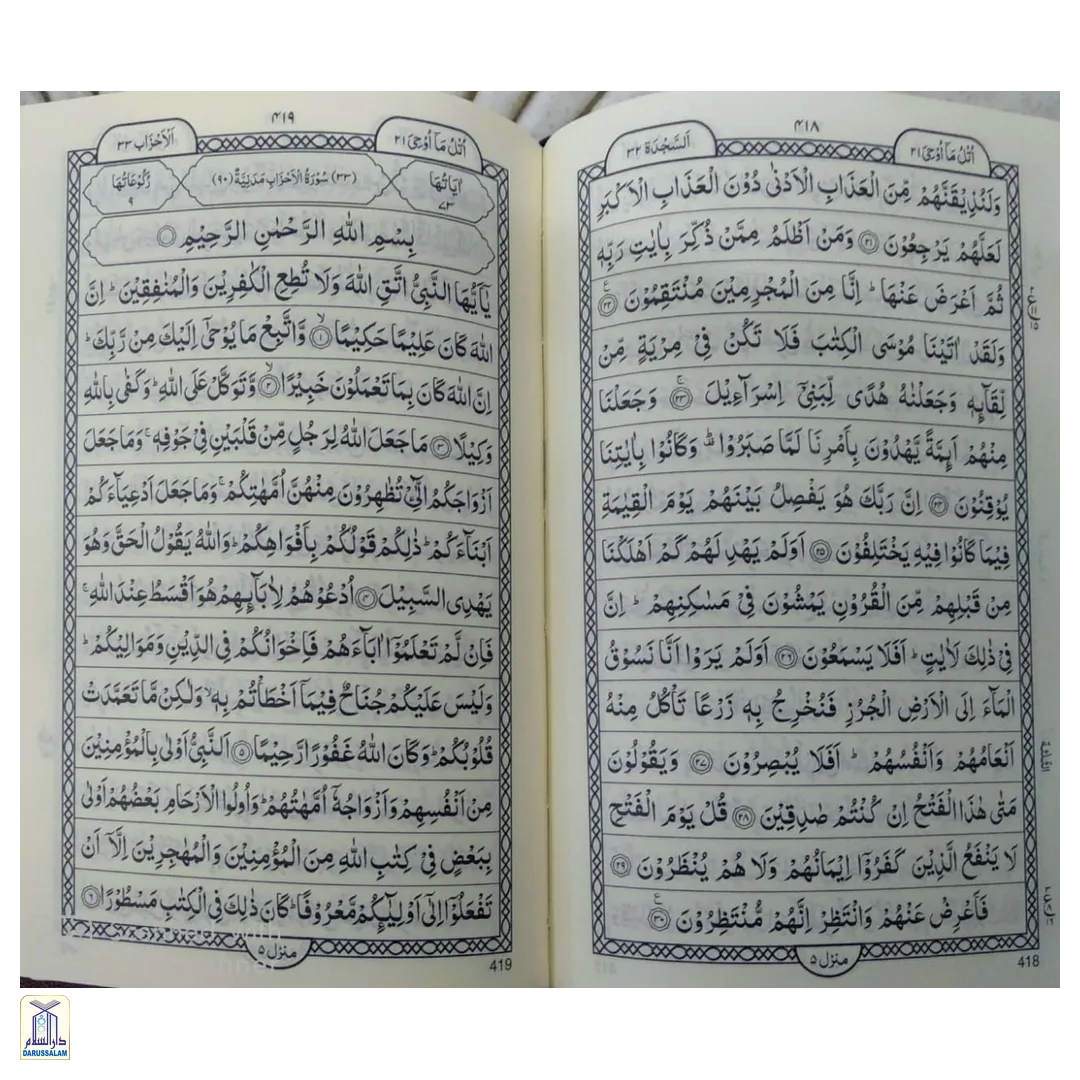 ۴۱۸
اُتْلُ مَآ اُوْحِیَ ۲۱
اَلسَّجْدَة ۳۲
وَلَنُذِيْقَنَّهُمْ مِّنَ الْعَذَابِ الْاَدْنٰى دُوْنَ الْعَذَابِ الْاَكْبَرِ
لَعَلَّهُمْ يَرْجِعُوْنَ ۝۲۱ وَمَنْ اَظْلَمُ مِمَّنْ ذُكِّرَ بِاٰيٰتِ رَبِّهٖ
ثُمَّ اَعْرَضَ عَنْهَا ؕ اِنَّا مِنَ الْمُجْرِمِيْنَ مُنْتَقِمُوْنَ ۝۲۲ ع
وَلَقَدْ اٰتَيْنَا مُوْسَى الْكِتٰبَ فَلَا تَكُنْ فِيْ مِرْيَةٍ مِّنْ
لِّقَآىِٕهٖ وَجَعَلْنٰهُ هُدًى لِّبَنِيْٓ اِسْرَآءِيْلَ ۝۲۳ ۚ وَجَعَلْنَا
مِنْهُمْ اَىِٕمَّةً يَّهْدُوْنَ بِاَمْرِنَا لَمَّا صَبَرُوْا ؕ وَكَانُوْا بِاٰيٰتِنَا
يُوْقِنُوْنَ ۝۲۴ اِنَّ رَبَّكَ هُوَ يَفْصِلُ بَيْنَهُمْ يَوْمَ الْقِيٰمَةِ
فِيْمَا كَانُوْا فِيْهِ يَخْتَلِفُوْنَ ۝۲۵ اَوَلَمْ يَهْدِ لَهُمْ كَمْ اَهْلَكْنَا
مِنْ قَبْلِهِمْ مِّنَ الْقُرُوْنِ يَمْشُوْنَ فِيْ مَسٰكِنِهِمْ ؕ اِنَّ
فِيْ ذٰلِكَ لَاٰيٰتٍ ؕ اَفَلَا يَسْمَعُوْنَ ۝۲۶ اَوَلَمْ يَرَوْا اَنَّا نَسُوْقُ
الْمَآءَ اِلَى الْاَرْضِ الْجُرُزِ فَنُخْرِجُ بِهٖ زَرْعًا تَاْكُلُ مِنْهُ
اَنْعَامُهُمْ وَاَنْفُسُهُمْ ؕ اَفَلَا يُبْصِرُوْنَ ۝۲۷ وَيَقُوْلُوْنَ
مَتٰى هٰذَا الْفَتْحُ اِنْ كُنْتُمْ صٰدِقِيْنَ ۝۲۸ قُلْ يَوْمَ الْفَتْحِ
لَا يَنْفَعُ الَّذِيْنَ كَفَرُوْٓا اِيْمَانُهُمْ وَلَا هُمْ يُنْظَرُوْنَ ۝۲۹
فَاَعْرِضْ عَنْهُمْ وَانْتَظِرْ اِنَّهُمْ مُّنْتَظِرُوْنَ ۝۳۰ ع
منزل ۵
418
۴۱۹
اُتْلُ مَآ اُوْحِیَ ۲۱
اَلْاَحْزَاب ۳۳
اٰيَاتُهَا ۷۳
(۳۳) سُوْرَةُ الْاَحْزَابِ مَدَنِيَّةٌ (۹۰)
رُكُوْعَاتُهَا ۹
بِسْمِ اللّٰهِ الرَّحْمٰنِ الرَّحِيْمِ
يٰٓاَيُّهَا النَّبِيُّ اتَّقِ اللّٰهَ وَلَا تُطِعِ الْكٰفِرِيْنَ وَالْمُنٰفِقِيْنَ ؕ اِنَّ
اللّٰهَ كَانَ عَلِيْمًا حَكِيْمًا ۝۱ ۙ وَّاتَّبِعْ مَا يُوْحٰٓى اِلَيْكَ مِنْ رَّبِّكَ ؕ
اِنَّ اللّٰهَ كَانَ بِمَا تَعْمَلُوْنَ خَبِيْرًا ۝۲ ۙ وَّتَوَكَّلْ عَلَى اللّٰهِ ؕ وَكَفٰى بِاللّٰهِ
وَكِيْلًا ۝۳ مَا جَعَلَ اللّٰهُ لِرَجُلٍ مِّنْ قَلْبَيْنِ فِيْ جَوْفِهٖ ۚ وَمَا جَعَلَ
اَزْوَاجَكُمُ الّٰٓـِٔيْ تُظٰهِرُوْنَ مِنْهُنَّ اُمَّهٰتِكُمْ ۚ وَمَا جَعَلَ اَدْعِيَآءَكُمْ
اَبْنَآءَكُمْ ؕ ذٰلِكُمْ قَوْلُكُمْ بِاَفْوَاهِكُمْ ؕ وَاللّٰهُ يَقُوْلُ الْحَقَّ وَهُوَ
يَهْدِى السَّبِيْلَ ۝۴ اُدْعُوْهُمْ لِاٰبَآىِٕهِمْ هُوَ اَقْسَطُ عِنْدَ اللّٰهِ ۚ
فَاِنْ لَّمْ تَعْلَمُوْٓا اٰبَآءَهُمْ فَاِخْوَانُكُمْ فِى الدِّيْنِ وَمَوَالِيْكُمْ ؕ
وَلَيْسَ عَلَيْكُمْ جُنَاحٌ فِيْمَآ اَخْطَاْتُمْ بِهٖ ۙ وَلٰكِنْ مَّا تَعَمَّدَتْ
قُلُوْبُكُمْ ؕ وَكَانَ اللّٰهُ غَفُوْرًا رَّحِيْمًا ۝۵ اَلنَّبِيُّ اَوْلٰى بِالْمُؤْمِنِيْنَ
مِنْ اَنْفُسِهِمْ وَاَزْوَاجُهٗٓ اُمَّهٰتُهُمْ ؕ وَاُولُوا الْاَرْحَامِ بَعْضُهُمْ اَوْلٰى
بِبَعْضٍ فِيْ كِتٰبِ اللّٰهِ مِنَ الْمُؤْمِنِيْنَ وَالْمُهٰجِرِيْنَ اِلَّآ اَنْ
تَفْعَلُوْٓا اِلٰٓى اَوْلِيٰٓىِٕكُمْ مَّعْرُوْفًا ؕ كَانَ ذٰلِكَ فِى الْكِتٰبِ مَسْطُوْرًا ۝۶
منزل ۵
419
دار السلام
DARUSSALAM